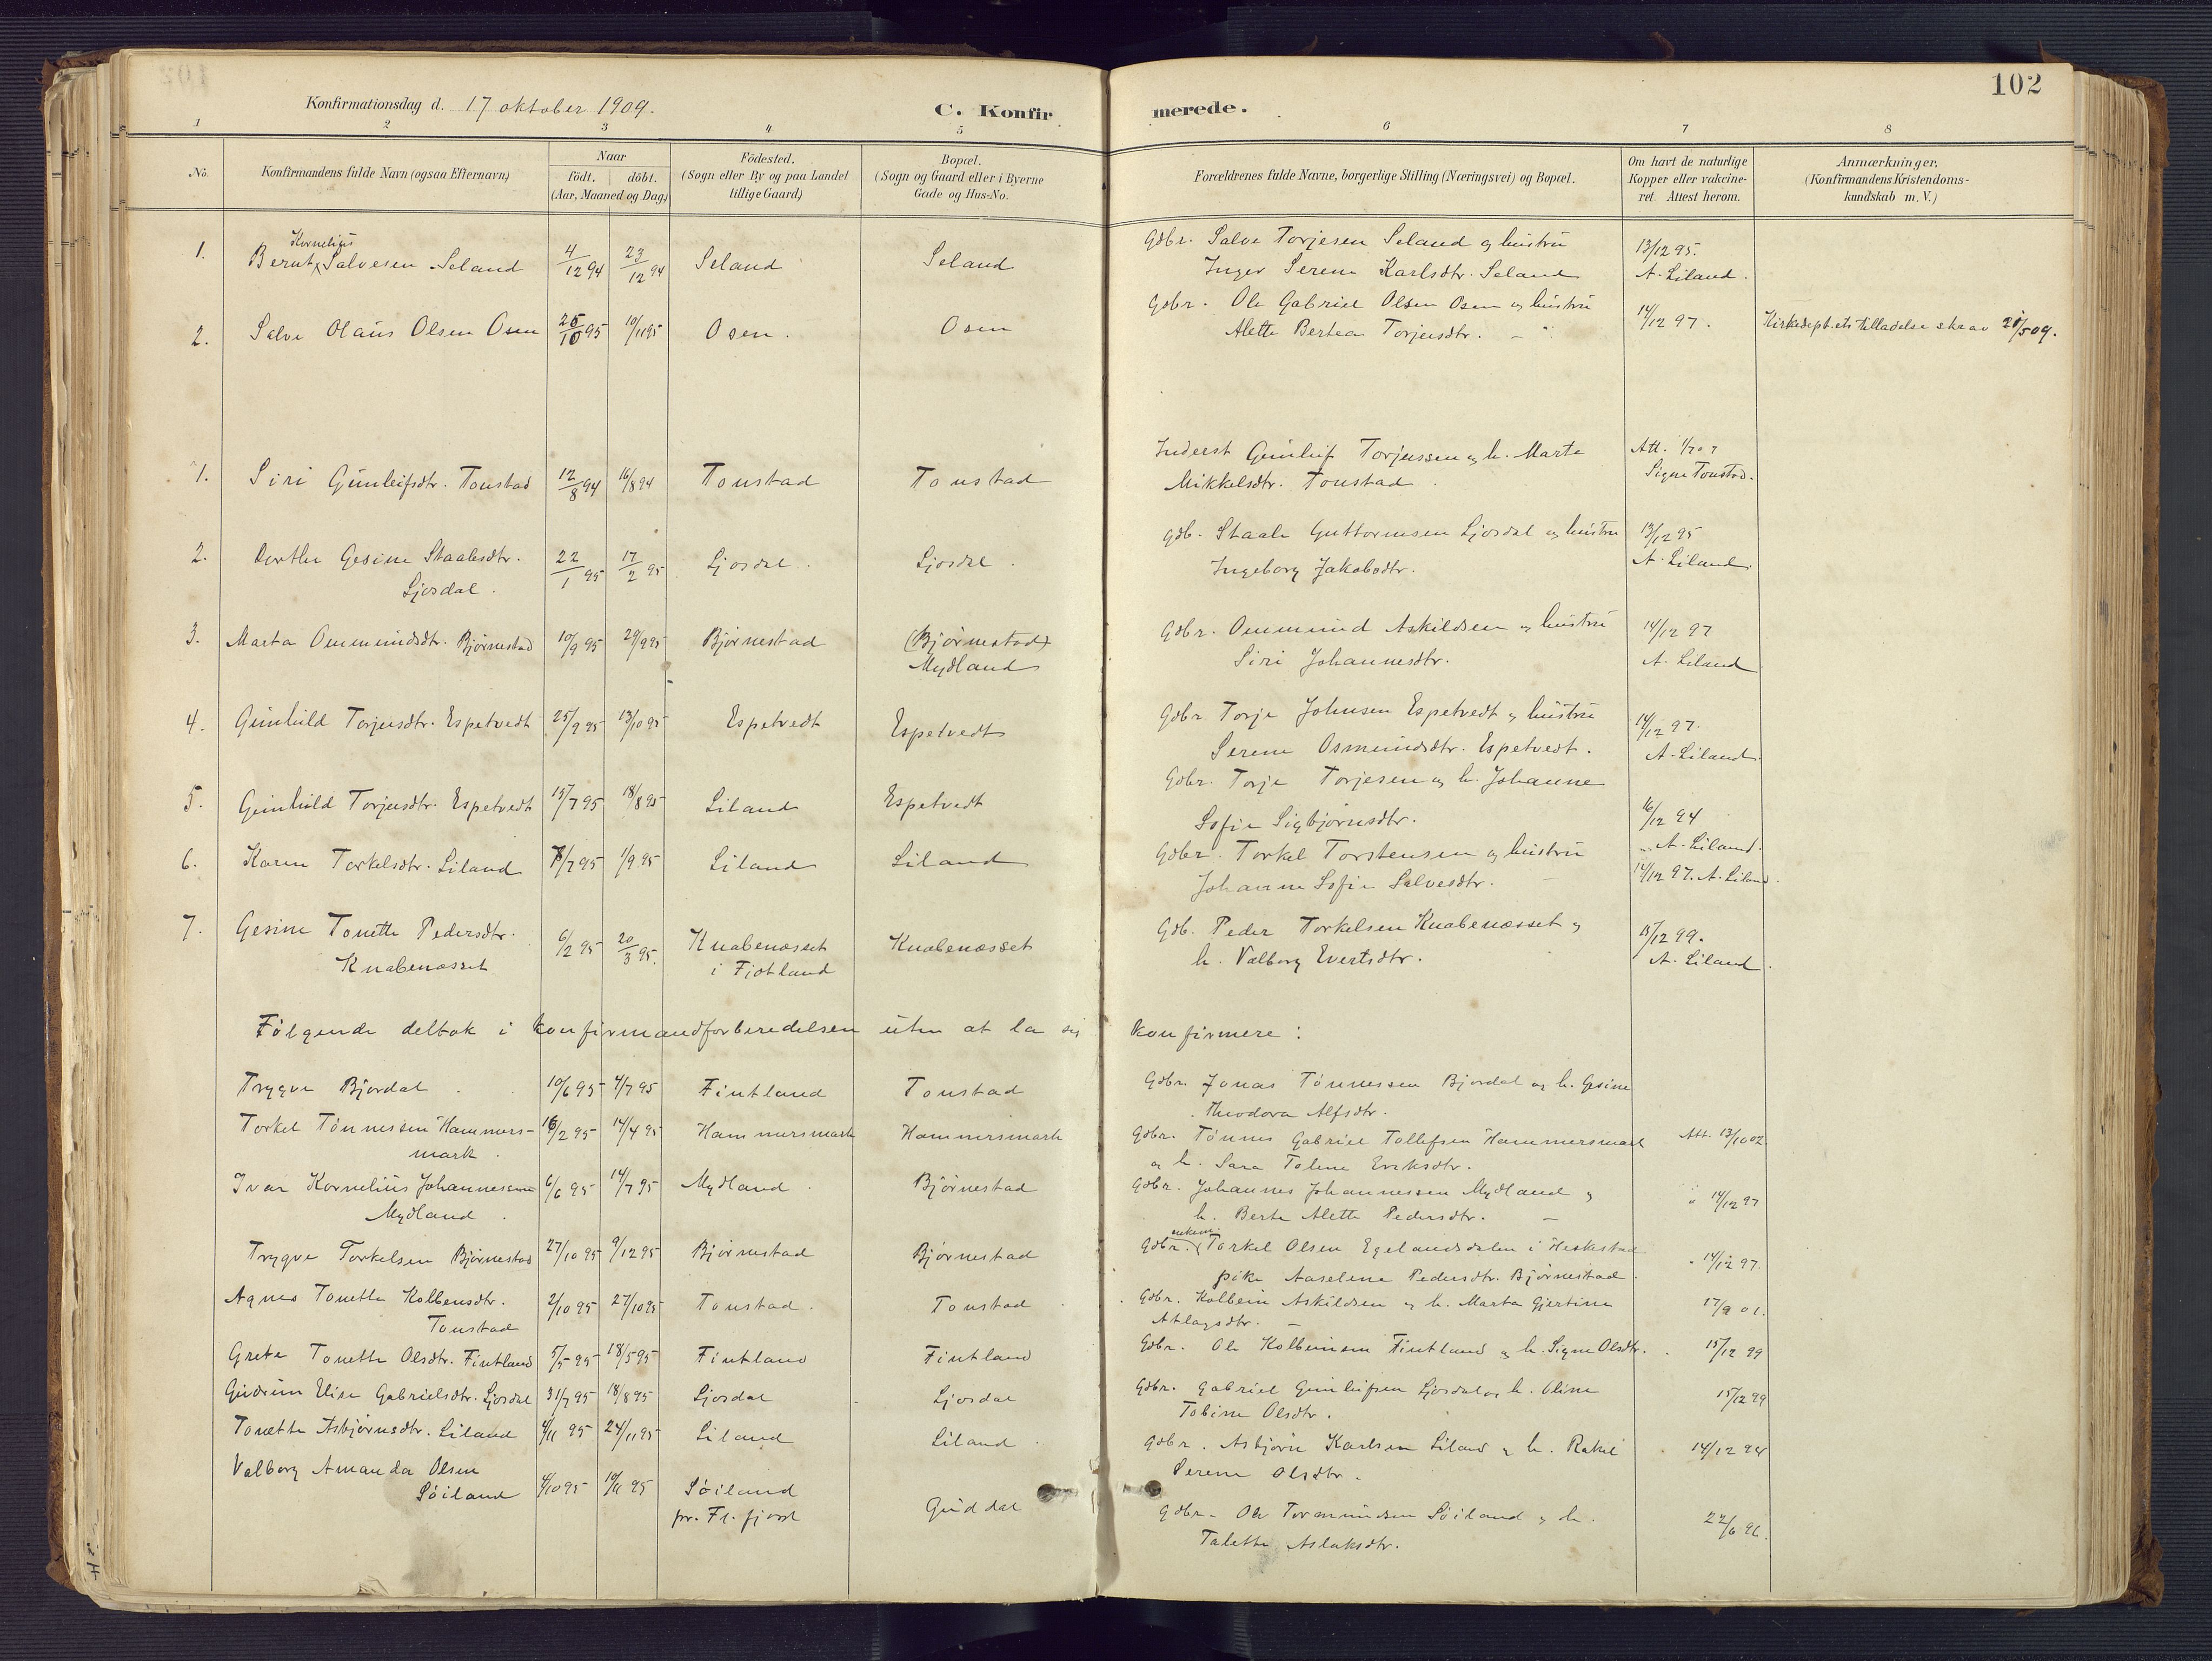 102
Konfirmationsdag d. 17 oktober 1909.
C. Konfirmerede.
1 2 3 4 5 6 7 8
No.
Konfirmandens fulde Navn (ogsaa Efternavn)
Naar
født. døbt.
(Aar, Maaned og Dag)
Födested.
(Sogn eller By og paa Landet
tillige Gaard)
Bopæl.
(Sogn og Gaard eller i Byerne
Gade og Hus-No.
Forældrenes fulde Navne, borgerlige Stilling (Næringsvei) og Bopæl.
Om havt de naturlige
Kopper eller vakcine-
ret. Attest herom.
Anmærkninger.
(Konfirmandens Kristendoms-
kundskab m. V.)
1. Bernt Kornelius Salvesen Seland 4/12 94 23/12 94 Seland Seland Gdbr. Salve Torjesen Seland og hustru 13/12 95.
Inger Serene Karlsdtr. Seland A. Liland.
2. Salve Olaus Olsen Osen 25/10 95 10/11 95 Osen. Osen Gdbr. Ole Gabriel Olsen Osen og hustru 14/12 97.
Alette Bertea Torjusdtr. — " Kirkedept.ets tilladelse skr. av 21/5 09.
1. Siri Gunleifsdtr. Tonstad 12/8 94 16/8 94 Tonstad Tonstad Inderst Gunleif Torjussen og h. Marta Att.
Mikkelsdtr. Tonstad Signe Tonstad.
2. Dorthe Gesine Staalesdtr. 22/1 95 17/2 95 Ljosdal. Ljosdal. Gdb. Staale Guttormsen Ljosdal og hustru 13/12 95
Ljosdal. Ingeborg Jakobsdtr. A. Liland.
3. Marta Ommundsdtr. Bjørnestad 10/9 95 29/9 95 Bjørnestad (Bjørnestad) Gdbr. Ommund Askildsen og hustru 14/12 97
Mydland Siri Johannesdtr. A. Liland
4. Gunhild Torjusdtr. Espetvedt 25/9 95 13/10 95 Espetvedt Espetvedt Gdbr. Torje Johnsen Espetvedt og hustru 14/12 97.
Serene Osmundsdtr. Espetvedt. A. Liland.
5. Gunhild Torjusdtr. Espetvedt 15/7 95 18/8 95 Liland Espetvedt Gdbr. Torje Torjesen og h. Johanne
Sofie Sigbjørnsdtr. 16/12 94
A. Liland.
6. Karen Torkelsdtr. Liland 7/7 95 1/9 95 Liland Liland Gdbr. Torkel Torstensen og hustru
Johanne Sofie Salvesdtr. 14/12 97. A. Liland.
7. Gesine Tonette Pedersdtr. 6/2 95 20/3 95. Knabenæsset Knabenæsset Gdb. Peder Torkelsen Knabenæsset og 15/12 99.
Knabenæsset i Fjotland h. Valborg Evertsdtr. A. Liland.
Følgende deltok i konfirmandforberedelsen uten at la sig konfirmere:
Trygve Bjordal 10/6 95 4/7 95 Fintland Tonstad Gdbr. Jonas Tønnessen Bjordal og h. Gesine
Theodora Alfsdtr.
Torkel Tønnessen Hammers- 16/2 95 14/4 95 Hammersmark Hammersmark Gdbr. Tønnes Gabriel Tollefsen Hammersmark Att. 13/10 02
mark. og h. Sara Tolene Eriksdtr.
Ivar Kornelius Johannessen 6/6 95 14/7 95 Mydland. Bjørnestad Gdbr. Johannes Johannessen Mydland og " 14/12 97
Mydland. h. Berte Alette Pedersdtr. —
Trygve Torkelsen Bjørnestad 27/10 95 9/12 95 Bjørnestad Bjørnestad Gdbr. Torkel Olsen Egelandsdalen i Heskestad " 14/12 97.
pike Aaselene Pedersdtr. Bjørnestad.
Agnes Tonette Kolbensdtr. 2/10 95 27/10 95 Tonstad. Tonstad Gdbr. Kolbein Askildsen og h. Marta Gjertine 17/9 01.
Tonstad Atlagsdtr. —
Grete Tonette Olsdtr. Fintland 5/5 95 18/5 95 Fintland Fintland Gdbr. Ole Kolbeinsen Fintland og h. Signe Olsdtr. 15/12 99
Gudrun Elise Gabrielsdtr. Ljosdal 31/7 95 18/8 95 Ljosdal Ljosdal Gdbr. Gabriel Gunleifsen Ljosdal og h. Oline 15/12 99
Tobine Olsdtr.
Tonette Asbjørnsdtr. Liland 4/11 95 24/11 95 Liland Liland. Gdbr. Asbjørn Karlsen Liland og h. Rakel 14/12 94
Serene Olsdtr.
Valborg Amanda Olsen 4/10 95 10/11 95 Søiland Guddal Gdbr. Ole Tormundsen Søiland og h. 22/6 96.
Søiland pr. Fl. fjord Talette Aslaksdtr.